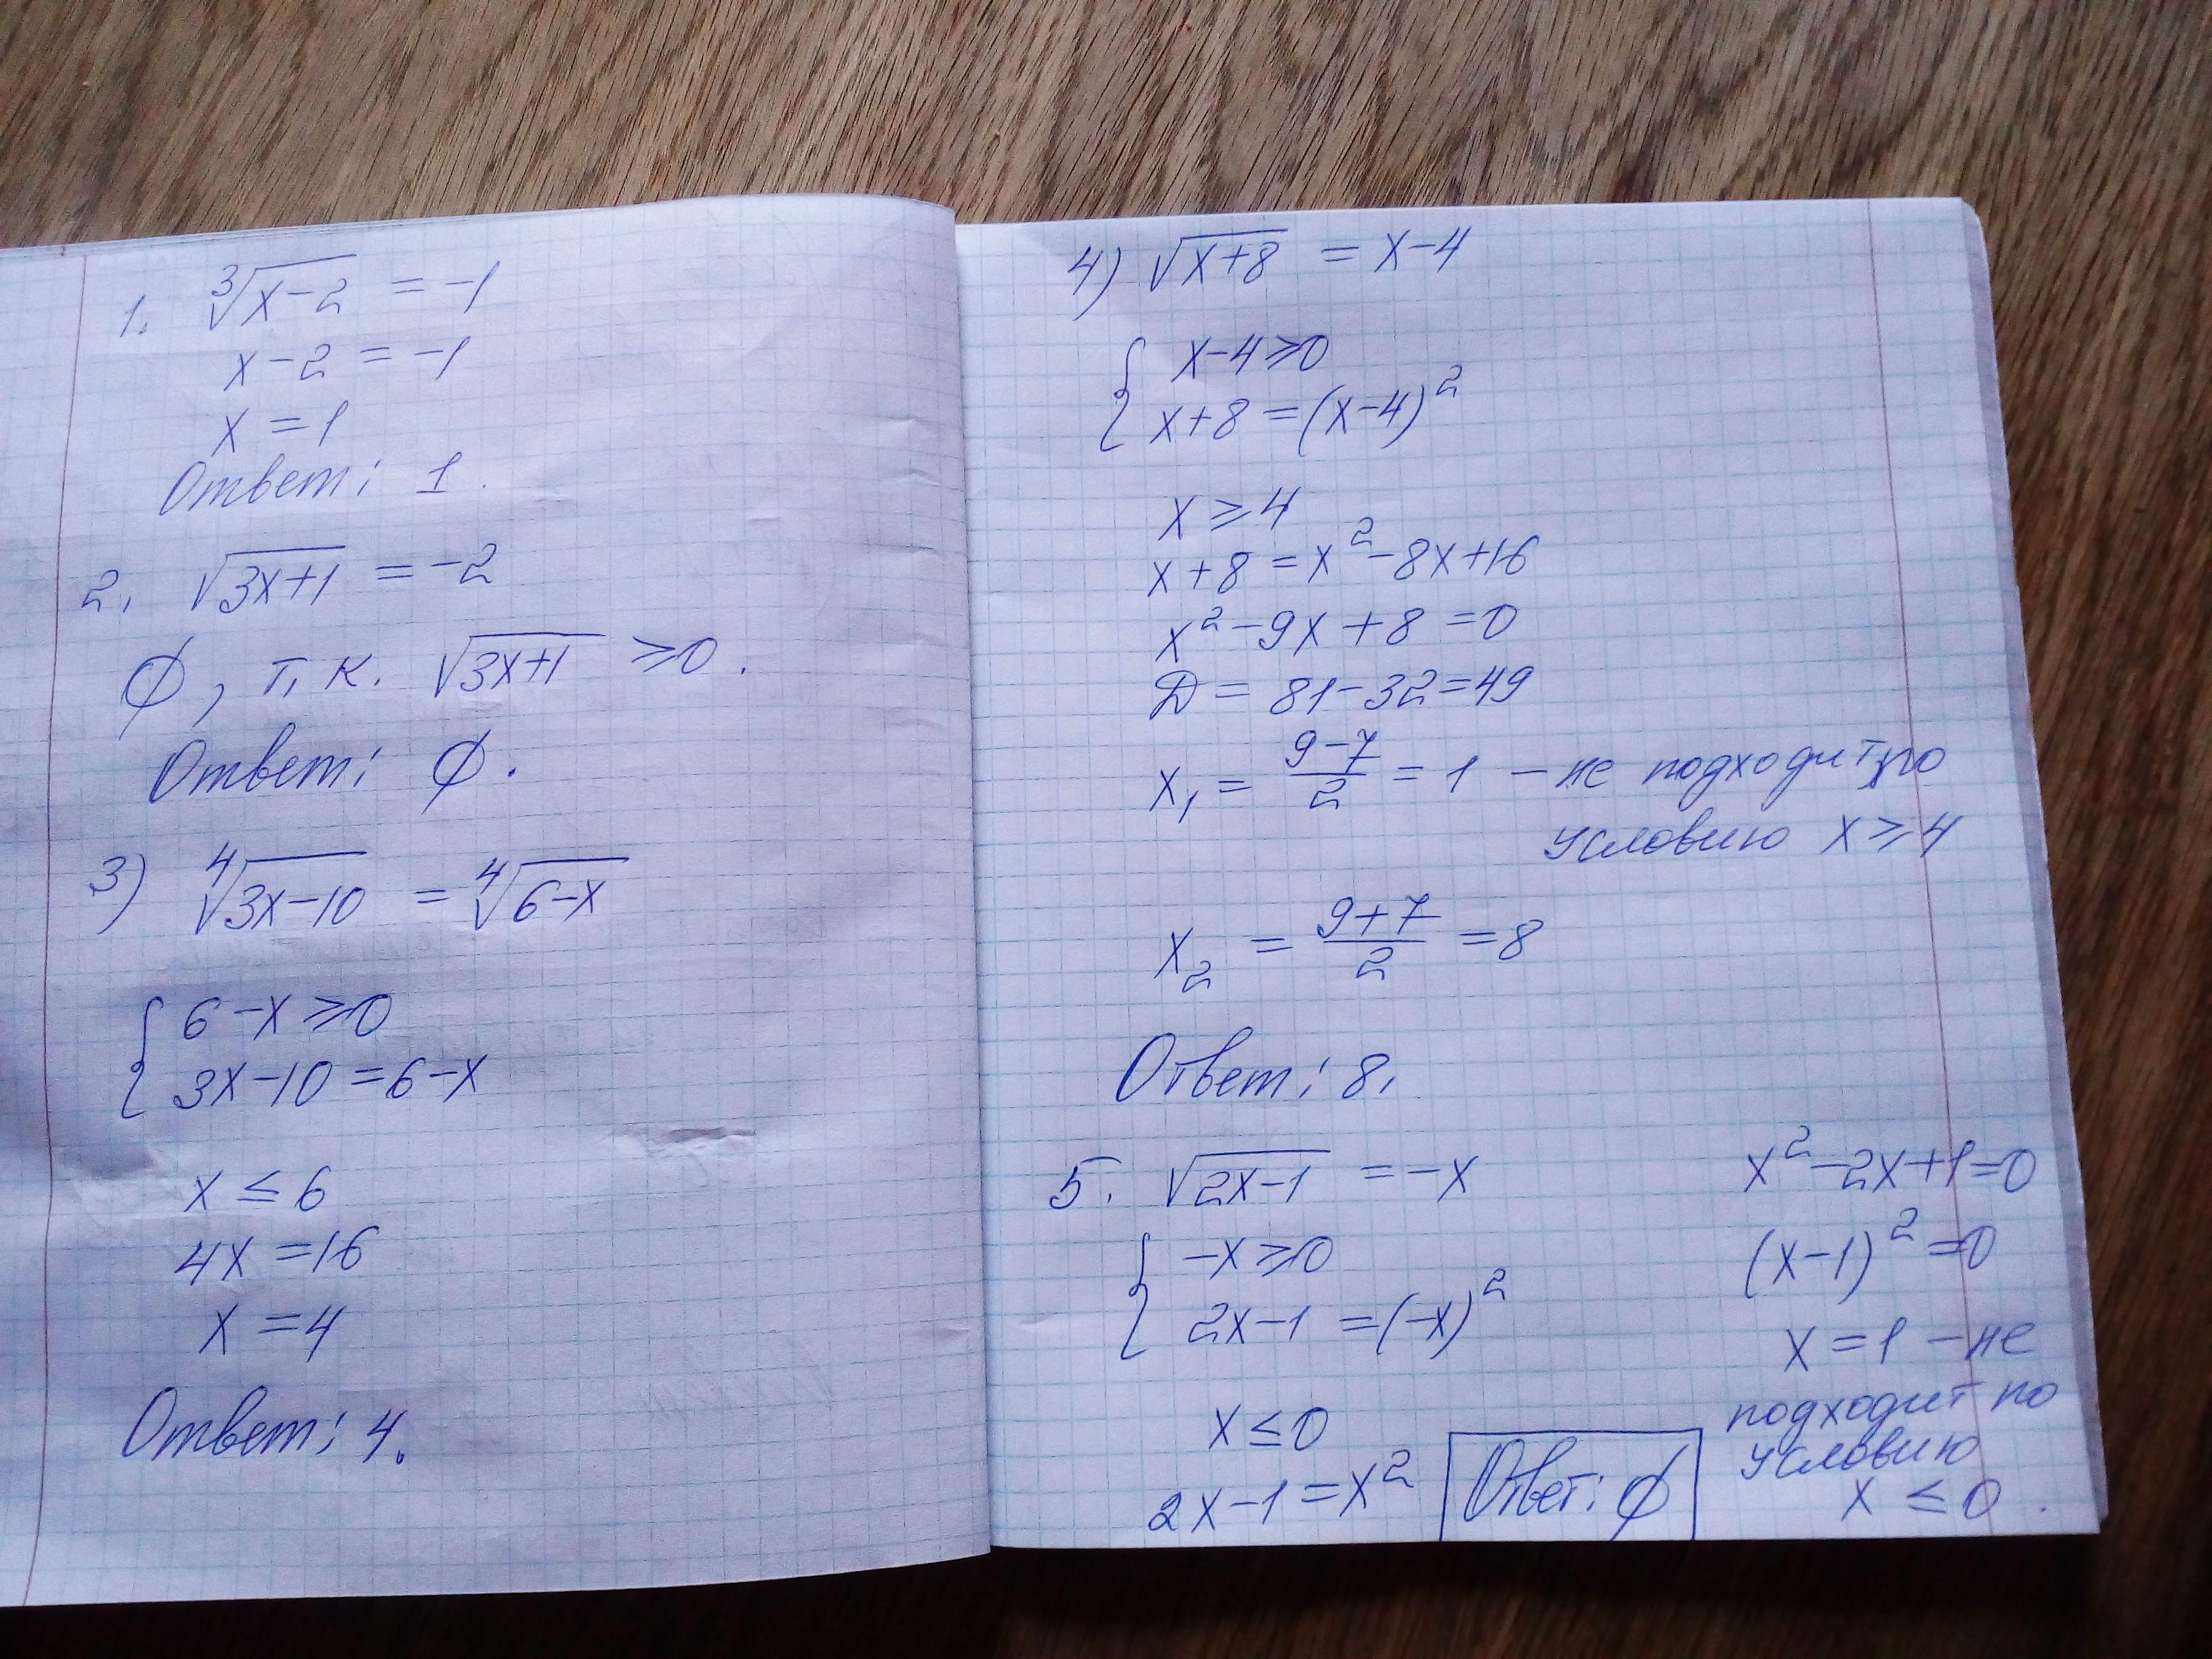 1. ∛(x-2) = -1
x-2 = -1
x = 1
Ответ: 1.
2. √(3x+1) = -2
∅, т.к. √(3x+1) ≥0.
Ответ: ∅.
3) ∜(3x-10) = ∜(6-x)
{ 6-x ≥0
3x-10=6-x
x ≤ 6
4x =16
x =4
Ответ: 4.
4) √(x+8) = x-4
{ x-4≥0
x+8=(x-4)²
x ≥ 4
x+8=x²-8x+16
x²-9x+8=0
D = 81-32=49
x₁ = (9-7)/2 = 1 - не подходит по
условию x≥4
x₂ = (9+7)/2 =8
Ответ: 8.
5. √(2x-1) = -x
{ -x≥0
2x-1 =(-x)²
x ≤0
2x-1=x²
x²-2x+1=0
(x-1)²=0
x=1 - не
подходит по
условию
x ≤ 0.
Ответ: ∅